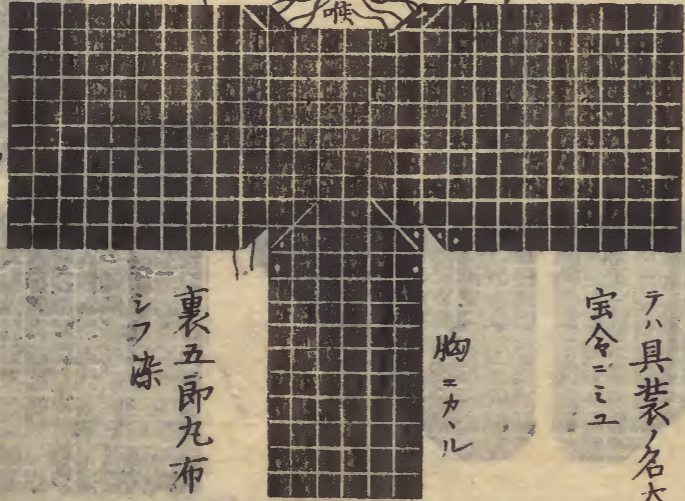 喉
テハ具装ノ名大
宝令ニミユ
胸エカヽル
裏五郎丸布
シフ染